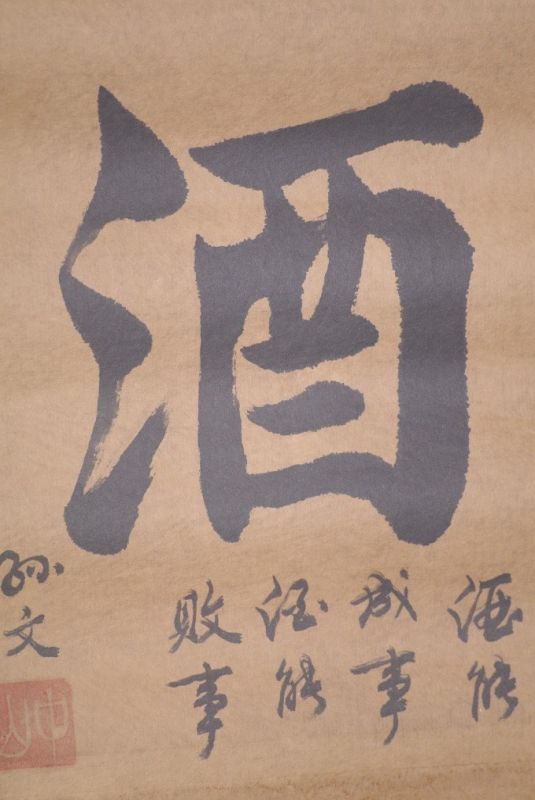 酒
酒能
成事
酒能
败事
孙文